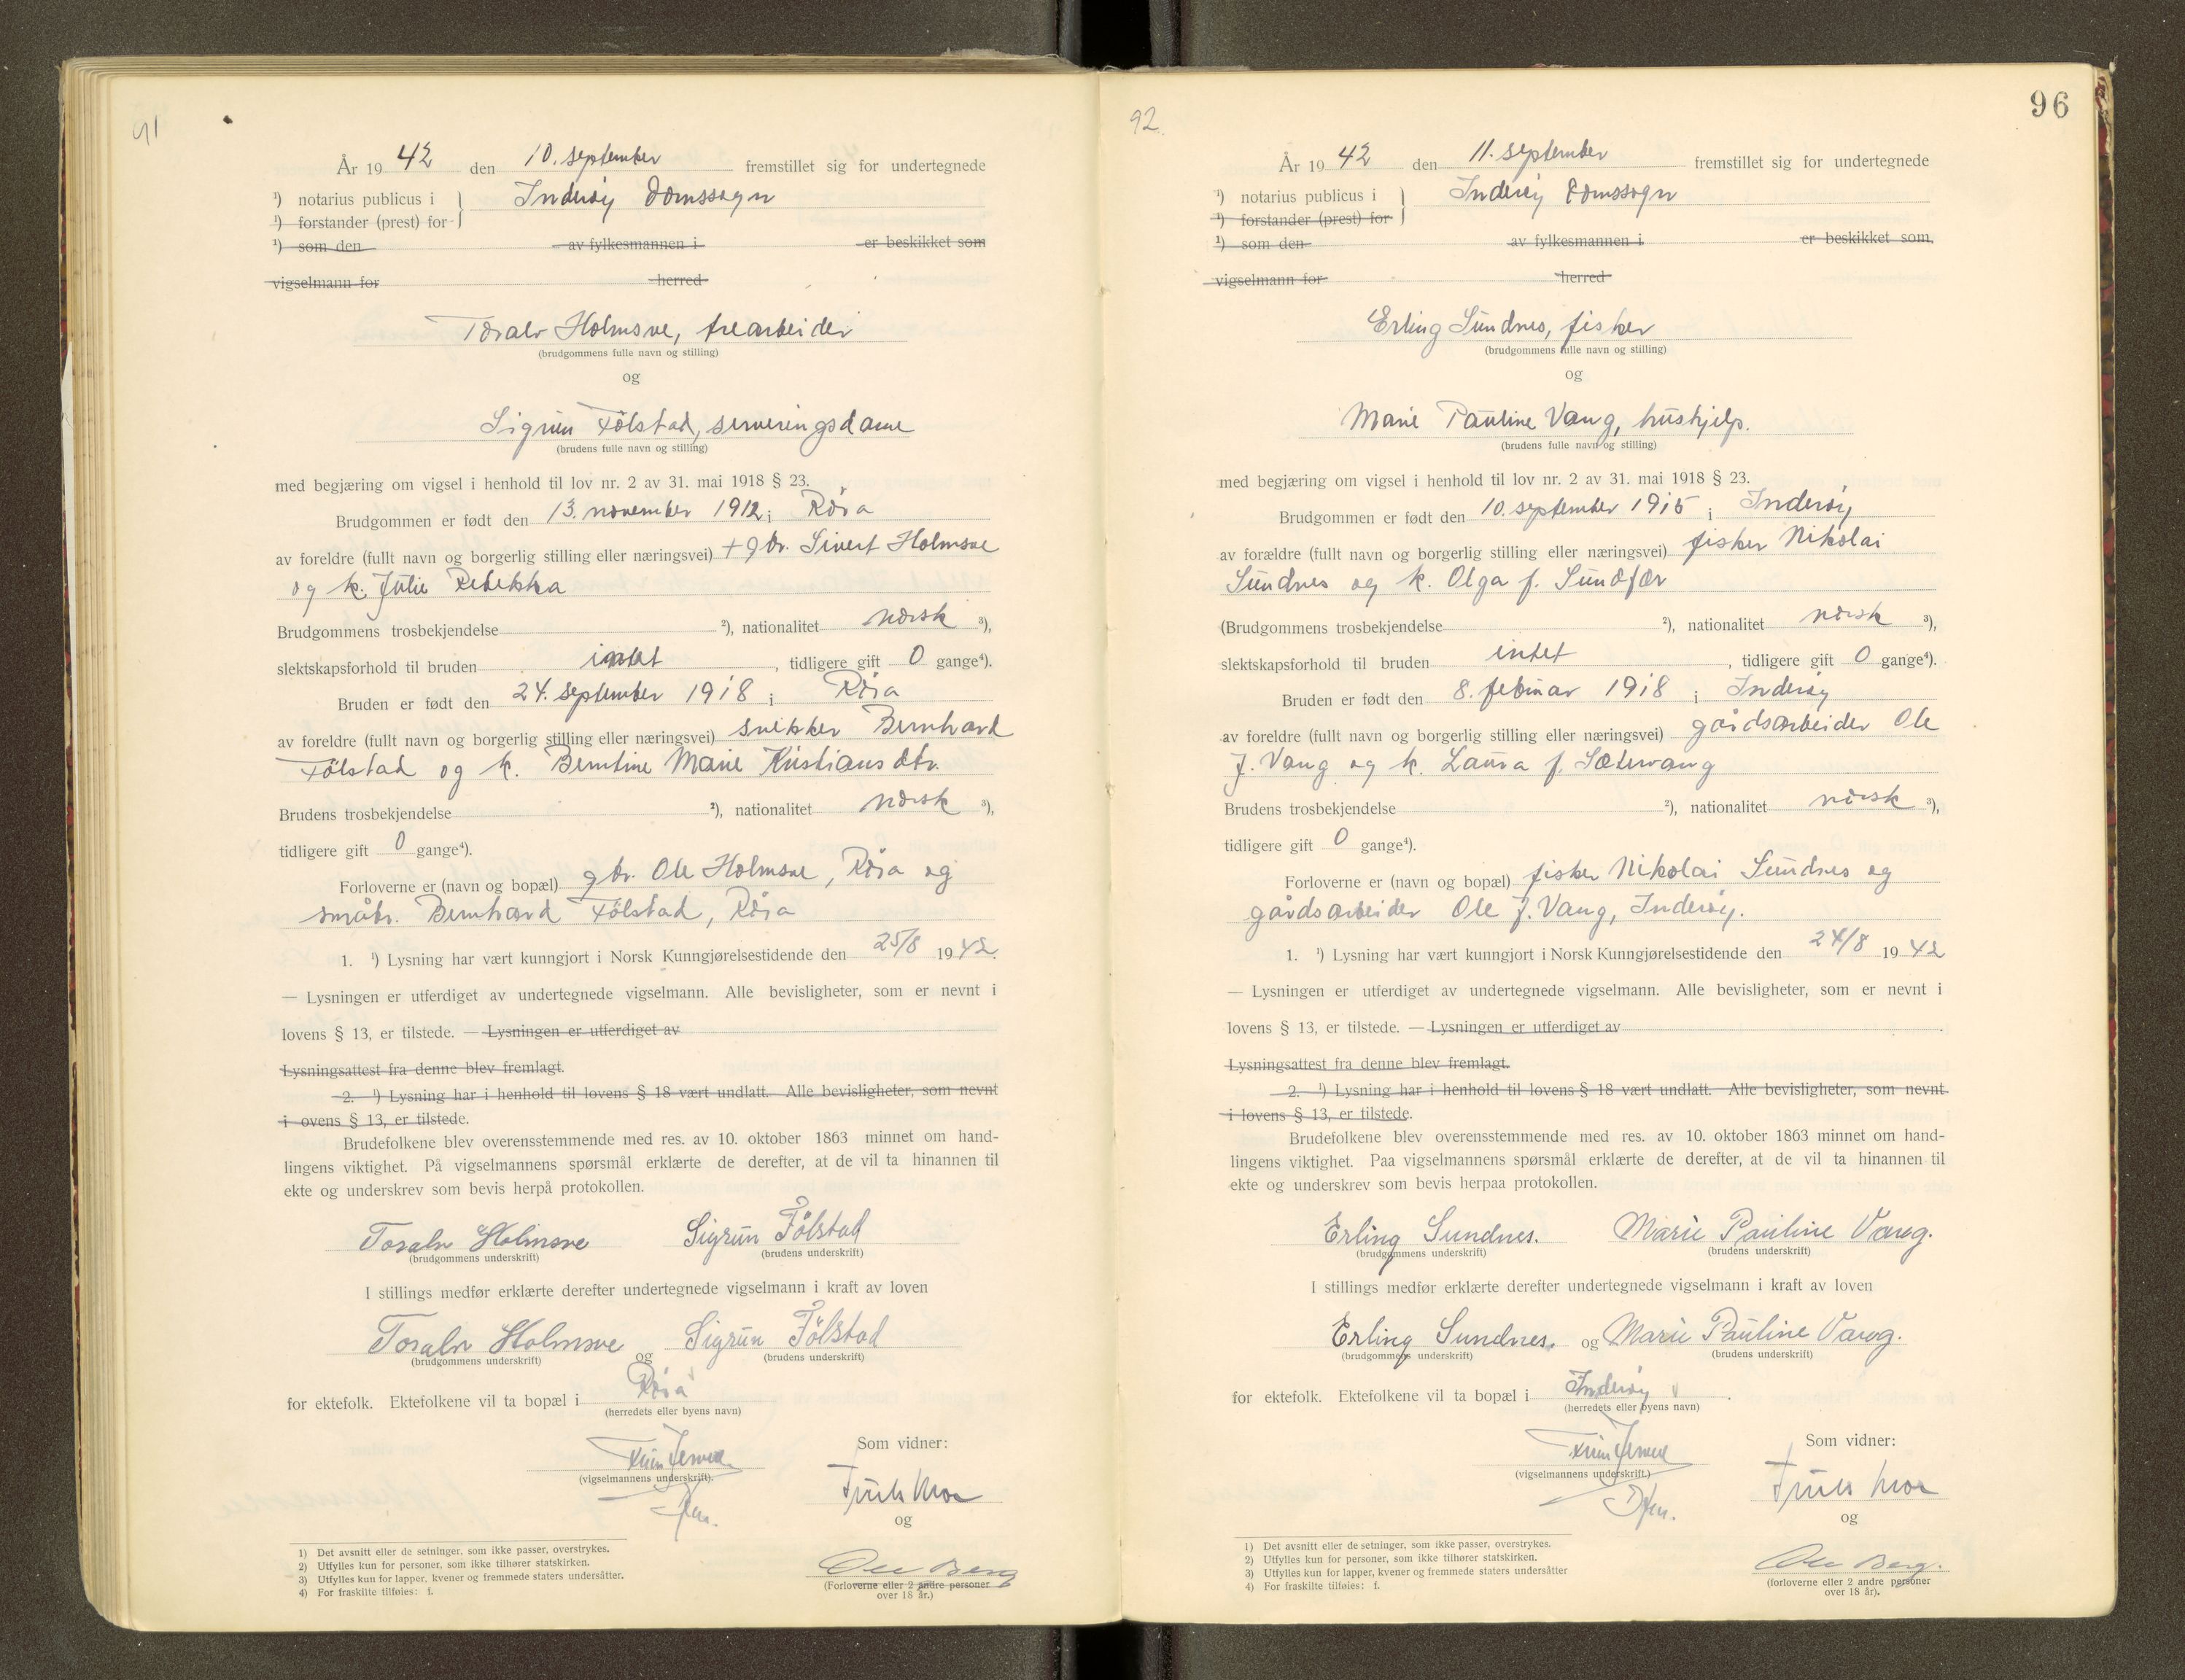 91
År 1942 den 10. september fremstillet sig for undertegnede
¹) notarius publicus i } Inderøy Domssogn
¹) forstander (prest) for
¹) som den av fylkesmannen i er beskikket som
vigselmann for herred
Toralv Holmsve, trearbeider
(brudgommens fulle navn og stilling)
og
Sigrun Følstad, serveringsdame
(brudens fulle navn og stilling)
med begjæring om vigsel i henhold til lov nr. 2 av 31. mai 1918 § 23.
Brudgommen er født den 13. november 1912 i Røra
av foreldre (fullt navn og borgerlig stilling eller næringsvei) + gbr. Sivert Holmsve
og k. Julie Rebekka
Brudgommens trosbekjendelse ²), nationalitet norsk ³),
slektskapsforhold til bruden intet, tidligere gift 0 gange⁴).
Bruden er født den 24. september 1918 i Røra
av foreldre (fullt navn og borgerlig stilling eller næringsvei) snekker Bernhard
Følstad og k. Berntine Marie Kristiansdtr.
Brudens trosbekjendelse ²), nationalitet norsk ³),
tidligere gift 0 gange⁴).
Forloverne er (navn og bopæl) gbr. Ole Holmsve, Røra og
småbr. Bernhard Følstad, Røra
1. ¹) Lysning har vært kunngjort i Norsk Kunngjørelsestidende den 25/8 1942.
— Lysningen er utferdiget av undertegnede vigselmann. Alle bevisligheter, som er nevnt i
lovens § 13, er tilstede. — Lysningen er utferdiget av
Lysningsattest fra denne blev fremlagt.
2. ¹) Lysning har i henhold til lovens § 18 vært undlatt. Alle bevisligheter, som nevnt
i ovens § 13, er tilstede.
Brudefolkene blev overensstemmende med res. av 10. oktober 1863 minnet om hand-
lingens viktighet. På vigselmannens spørsmål erklærte de derefter, at de vil ta hinannen til
ekte og underskrev som bevis herpå protokollen.
Toralv Holmsve Sigrun Følstad
(brudgommens underskrift) (brudens underskrift)
I stillings medfør erklærte derefter undertegnede vigselmann i kraft av loven
Toralv Holmsve og Sigrun Følstad
(brudgommens underskrift) (brudens underskrift)
for ektefolk. Ektefolkene vil ta bopæl i Røra
(herredets eller byens navn)
Som vidner:
(vigselmannens underskrift).
og
Ole Berg
(Forloverne eller 2 andre personer
over 18 år.)
1) Det avsnitt eller de setninger, som ikke passer, overstrykes.
2) Utfylles kun for personer, som ikke tilhører statskirken.
3) Utfylles kun for lapper, kvener og fremmede staters undersåtter.
4) For fraskilte tilføies: f.
92.
96
År 1942 den 11. september fremstillet sig for undertegnede
¹) notarius publicus i } Inderøy Domssogn
¹) forstander (prest) for
¹) som den av fylkesmannen i er beskikket som
vigselmann for herred
Erling Sundnes, fisker
(brudgommens fulle navn og stilling)
og
Marie Pauline Vang, hushjelp.
(brudens fulle navn og stilling)
med begjæring om vigsel i henhold til lov nr. 2 av 31. mai 1918 § 23.
Brudgommen er født den 10. september 1915 i Inderøy
av forældre (fullt navn og borgerlig stilling eller næringsvei) fisker Nikolai
Sundnes og k. Olga f. Sundfær
(Brudgommens trosbekjendelse ²), nationalitet norsk ³),
slektskapsforhold til bruden intet, tidligere gift 0 gange⁴).
Bruden er født den 8. februar 1918 i Inderøy
av foreldre (fullt navn og borgerlig stilling eller næringsvei) gårdsarbeider Ole
J. Vang og k. Laura f. Sætervang
Brudens trosbekjendelse ²), nationalitet norsk ³),
tidligere gift 0 gange⁴).
Forloverne er (navn og bopæl) fisker Nikolai Sundnes og
gårdsarbeider Ole J. Vang, Inderøy.
1. ¹) Lysning har vært kunngjort i Norsk Kunngjørelsestidende den 24/8 1942
— Lysningen er utferdiget av undertegnede vigselmann. Alle bevisligheter, som er nevnt i
lovens § 13, er tilstede. — Lysningen er utferdiget av .
Lysningsattest fra denne blev fremlagt.
2. ¹) Lysning har i henhold til lovens § 18 vært undlatt. Alle bevisligheter, som nevnt
i lovens § 13, er tilstede.
Brudefolkene blev overensstemmende med res. av 10. oktober 1863 minnet om hand-
lingens viktighet. Paa vigselmannens spørsmål erklærte de derefter, at de vil ta hinannen til
ekte og underskrev som bevis herpaa protokollen.
Erling Sundnes. Marie Pauline Vang.
(brudgommens underskrift) (brudens underskrift)
I stillings medfør erklærte derefter undertegnede vigselmann i kraft av loven
Erling Sundnes. og Marie Pauline Vang.
(brudgommens underskrift) (brudens underskrift)
for ektefolk. Ektefolkene vil ta bopæl i Inderøy .
(herredets eller byens navn)
Som vidner:
(vigselmannens underskrift.)
og
Ole Berg.
(forloverne eller 2 andre personer
over 18 år).
1) Det avsnitt eller de setninger, som ikke passer, overstrykes.
2) Utfylles kun for personer, som ikke tilhører statskirken.
3) Utfylles kun for lapper, kvener og fremmede staters undersåtter
4) For fraskilte tilføies: f.